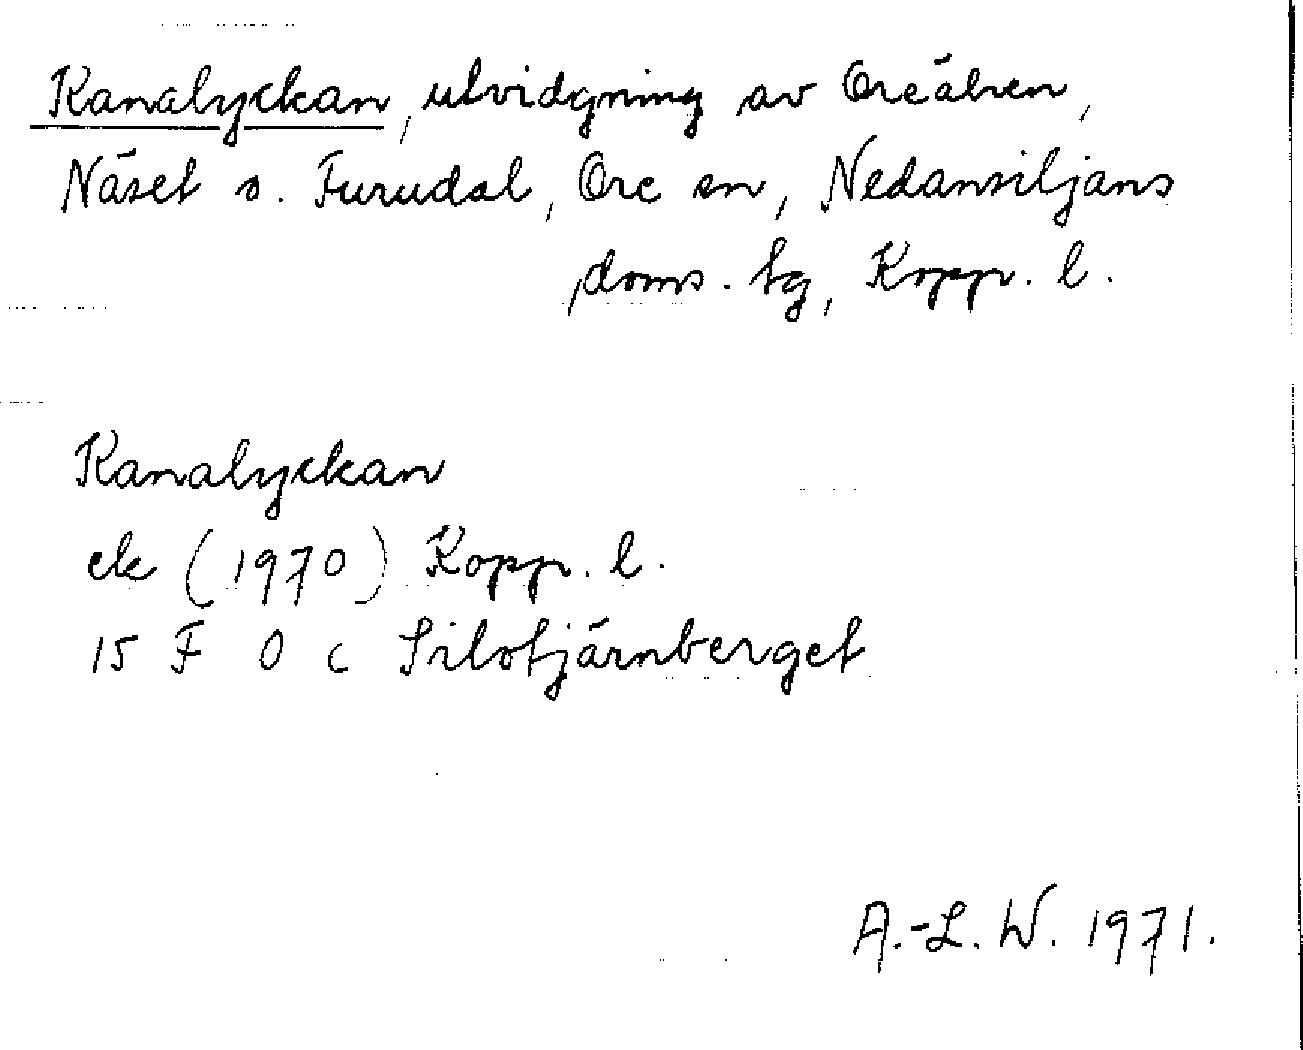 Kanalyckan, utvidgning av Oreälven,
Näset s. Furudal, Ore sn, Nedansiljans
doms. tg, Kopp. l.
Kanalyckan
ek (1970) Kopp. l.
15 F 0 c Silotjärnberget
A.-L. W. 1971.